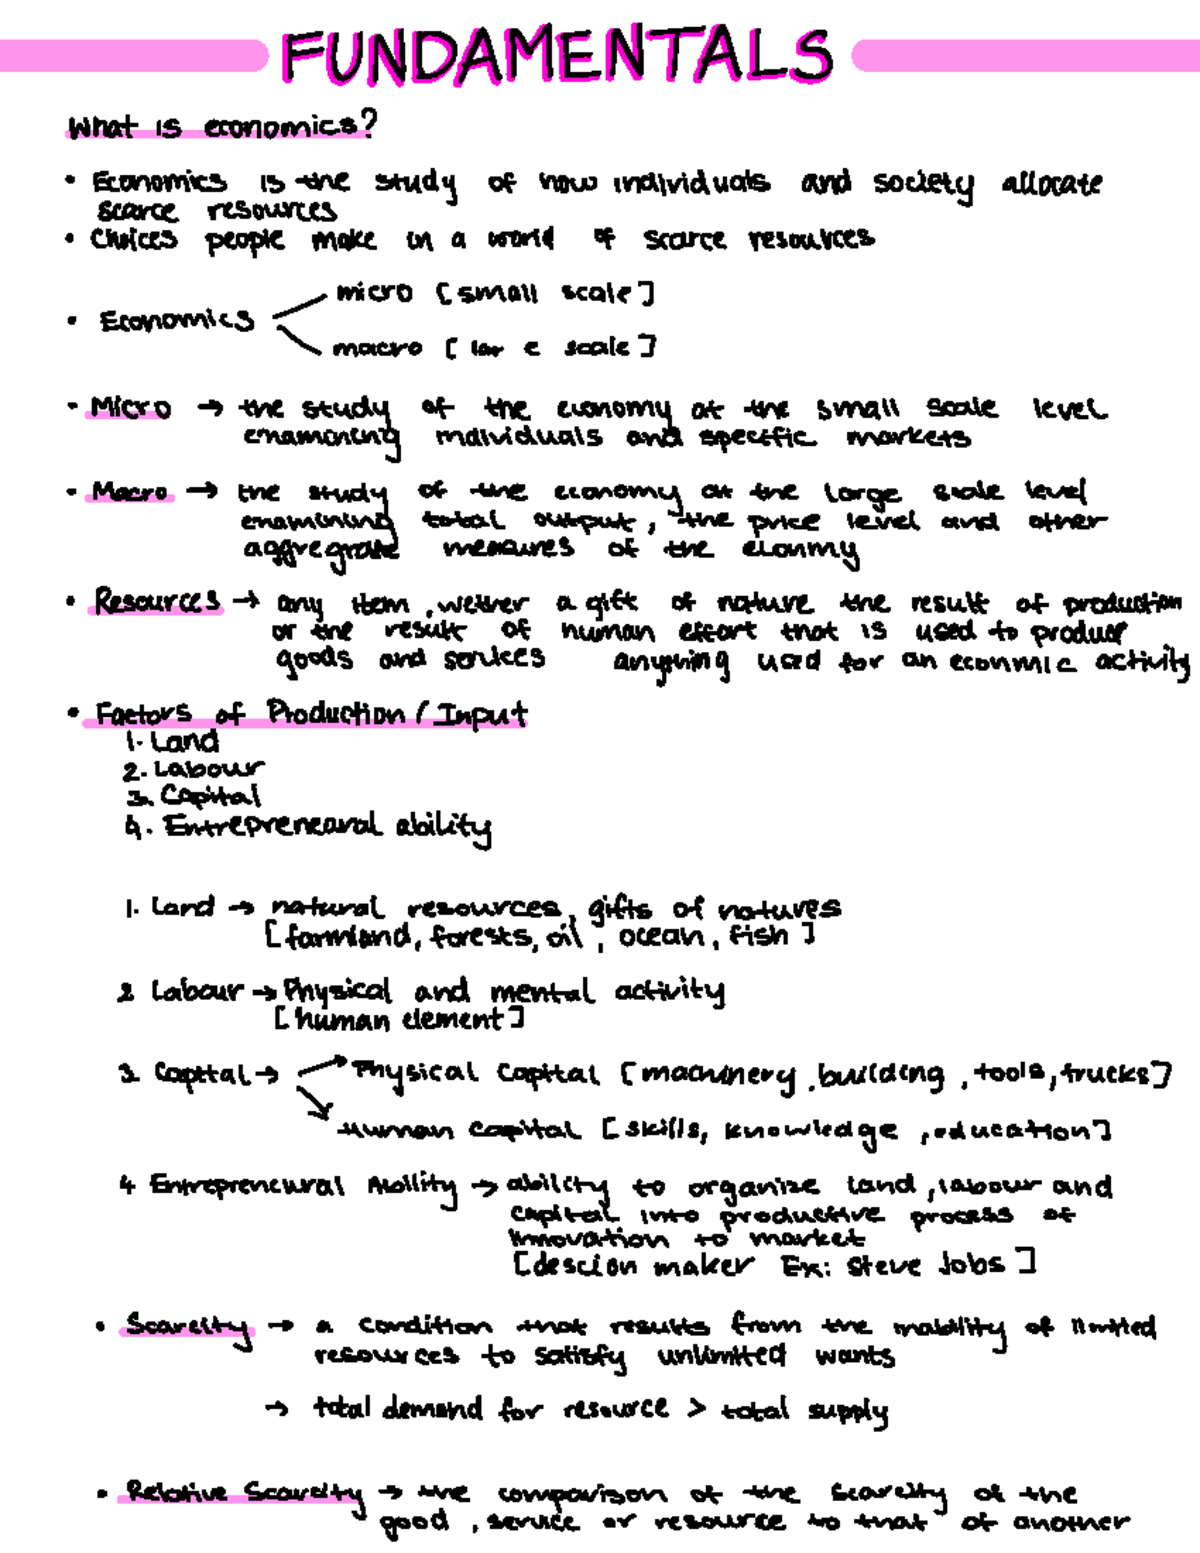 FUNDAMENTALS
What is economics?
• Economics is the study of how individuals and society allocate
scarce resources
• Choices people make in a world of scarce resources
micro [small scale]
• Economics
macro [lar e scale]
• Micro → the study of the economy at the small scale level
enamining individuals and specific markets
• Macro → the study of the economy at the large scale level
enamining total output, the price level and other
aggregrate measures of the elonmy
• Resources → any item, wether a gift of nature the result of production
or the result of human effort that is used to produce
goods and services anything used for an econmic activity
• Factors of Production / Input
1. Land
2. Labour
3. Capital
4. Entreprenearal ability
1. Land → natural resources, gifts of natures
[farmland, forests, oil, ocean, fish]
2 Labour → Physical and mental activity
[human element]
3. Capital → Physical Capital [machinery, building, tools, trucks]
Human Capital [skills, knowledge, education]
4 Entrepreneural Ability → ability to organize land, labour and
capital into productive process of
innovation to market
[descion maker Ex: Steve Jobs]
• Scarcity → a condition that results from the inability of limited
resources to satisfy unlimited wants
→ total demand for resource > total supply
• Relative Scarcity → the comparison of the scarcity of the
good, service or resource to that of another